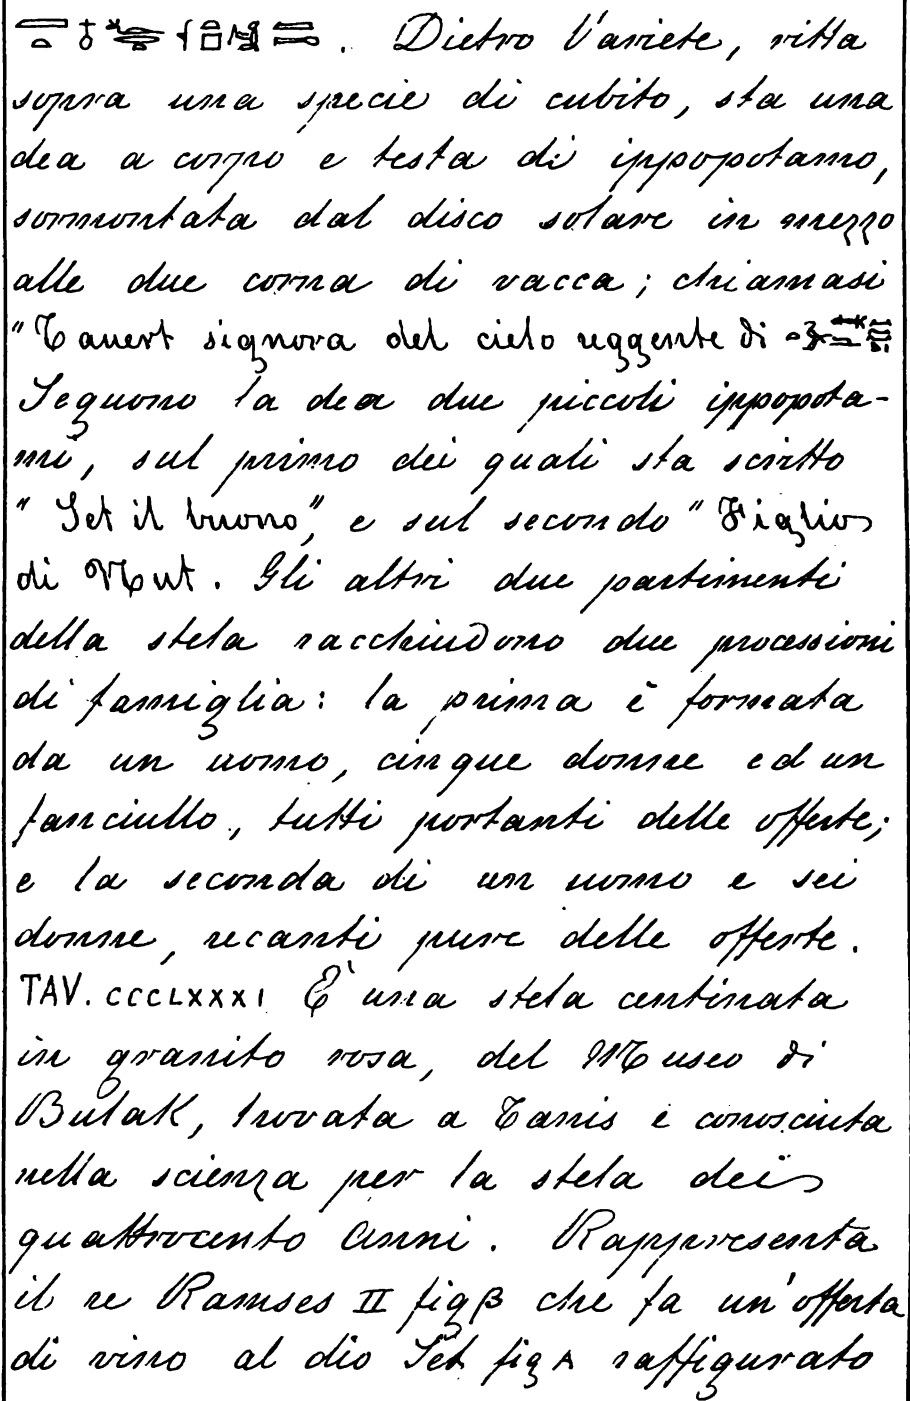 . Dietro l'ariete, ritta
sopra una specie di cubito, sta una
dea a corpo e testa di ippopotamo,
sormontata dal disco solare in mezzo
alle due corna di vacca; chiamasi
"Tauert signora del cielo reggente di
Seguono la dea due piccoli ippopota-
mi, sul primo dei quali sta scritto
"Set il buono", e sul secondo "Figlio
di Nut. Gli altri due partimenti
della stela racchiudono due processioni
di famiglia: la prima è formata
da un uomo, cinque donne ed un
fanciullo, tutti portanti delle offerte;
e la seconda di un uomo e sei
donne, recanti pure delle offerte.
TAV. CCCLXXXI È una stela centinata
in granito rosa, del Museo di
Bulak, trovata a Tanis e conosciuta
nella scienza per la stela dei
quattrocento anni. Rappresenta
il re Ramses II fig B che fa un'offerta
di vino al dio Set fig A raffigurato